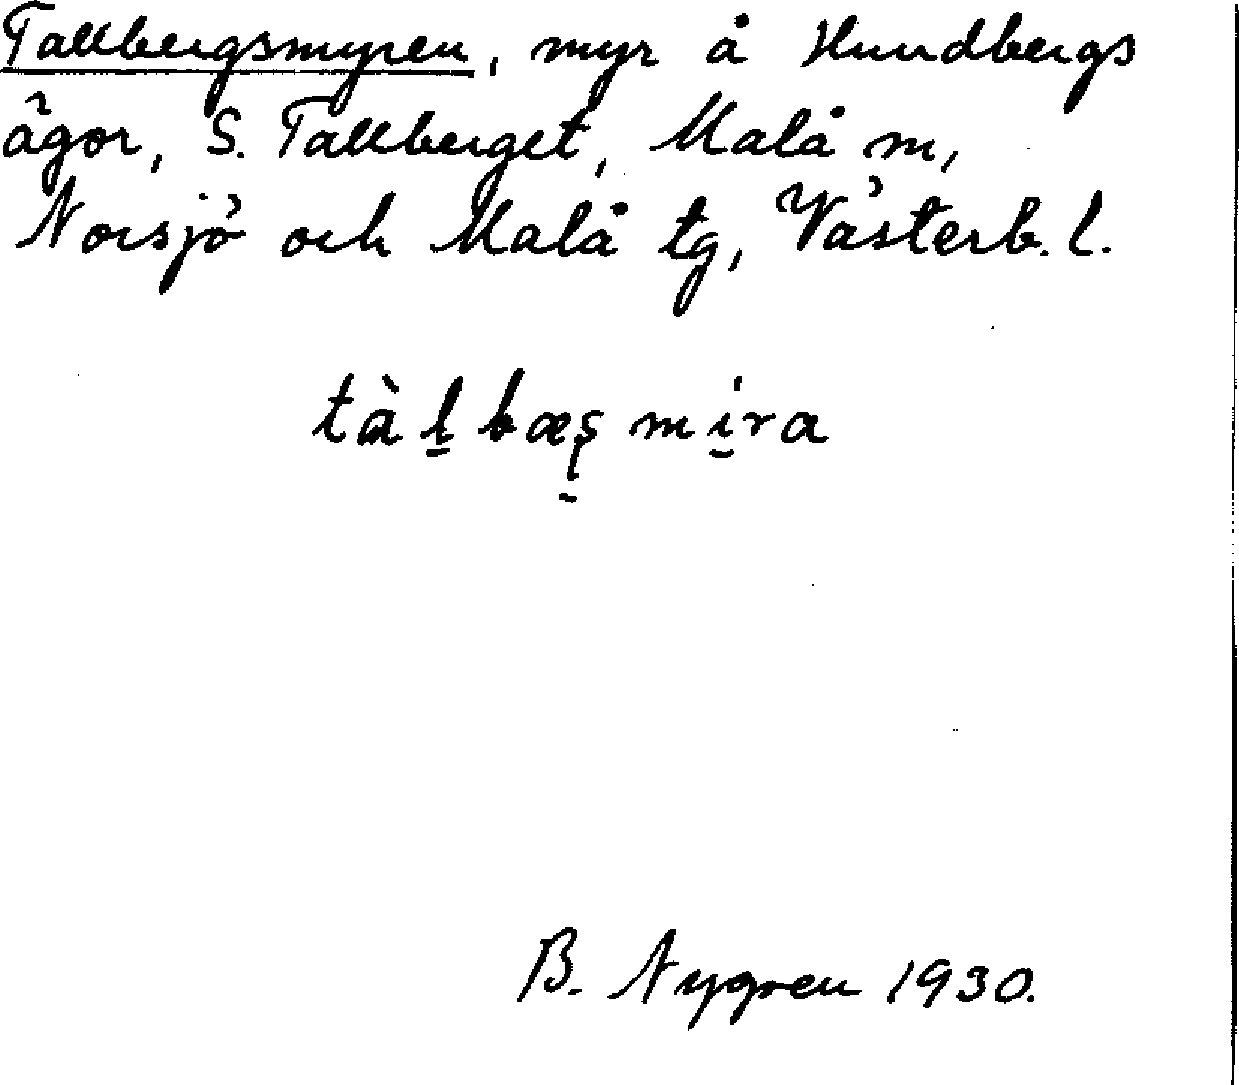 Tallbergsmyren, myr å Hundbergs
ägor, S. Tallberget, Malå sn,
Norsjö och Malå tg, Västerb. l.
tàl̠bæʂ̠mi̠ra
B. Nygren 1930.